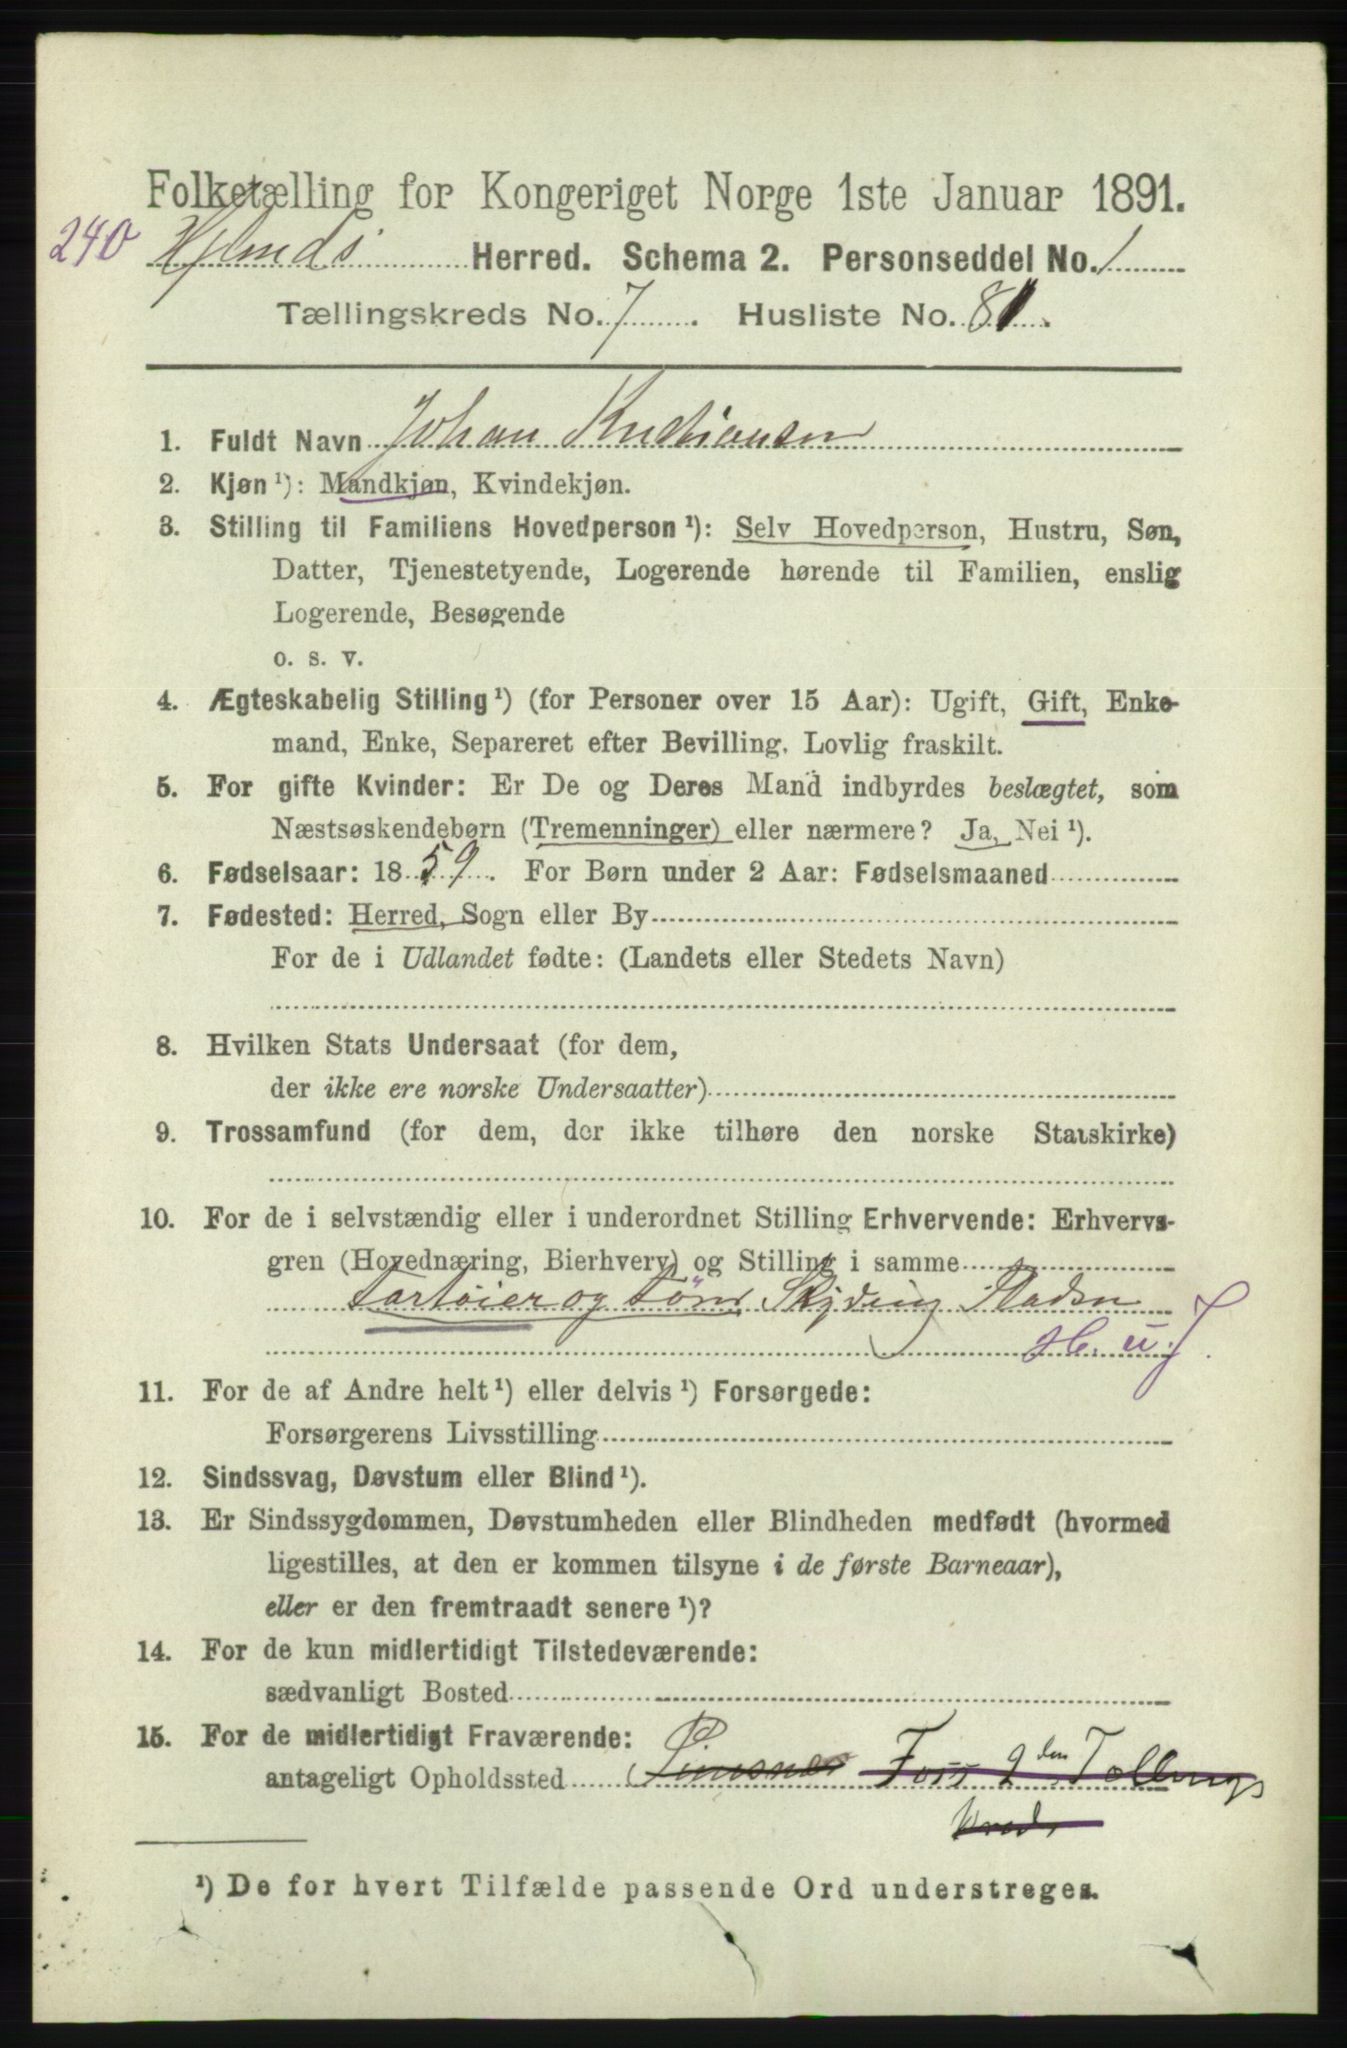 Folketælling for Kongeriget Norge 1ste Januar 1891.
240 Herred. Schema 2. Personseddel No. 1
Tællingskreds No. 7. Husliste No. 81.
1. Fuldt Navn Johan Kristiansen
2. Kjøn ¹): Mandkjøn, Kvindekjøn.
3. Stilling til Familiens Hovedperson ¹): Selv Hovedperson, Hustru, Søn,
Datter, Tjenestetyende, Logerende hørende til Familien, enslig
Logerende, Besøgende
o. s. v.
4. Ægteskabelig Stilling ¹) (for Personer over 15 Aar): Ugift, Gift, Enke-
mand, Enke, Separeret efter Bevilling. Lovlig fraskilt.
5. For gifte Kvinder: Er De og Deres Mand indbyrdes beslægtet, som
Næstsøskendebørn (Tremenninger) eller nærmere? Ja, Nei ¹).
6. Fødselsaar: 1859. For Børn under 2 Aar: Fødselsmaaned
7. Fødested: Herred, Sogn eller By
For de i Udlandet fødte: (Landets eller Stedets Navn)
8. Hvilken Stats Undersaat (for dem,
der ikke ere norske Undersaatter)
9. Trossamfund (for dem, der ikke tilhøre den norske Statskirke)
10. For de i selvstændig eller i underordnet Stilling Erhvervende: Erhvervs-
gren (Hovednæring, Bierhverv) og Stilling i samme
og
H. u. J.
11. For de af Andre helt ¹) eller delvis ¹) Forsørgede:
Forsørgerens Livsstilling
12. Sindssvag, Døvstum eller Blind ¹).
13. Er Sindssygdommen, Døvstumheden eller Blindheden medfødt (hvormed
ligestilles, at den er kommen tilsyne i de første Barneaar),
eller er den fremtraadt senere ¹)?
14. For de kun midlertidigt Tilstedeværende:
sædvanligt Bosted
15. For de midlertidigt Fraværende:
antageligt Opholdssted Foss 9den Tællings
Kreds
¹) De for hvert Tilfælde passende Ord understreges.